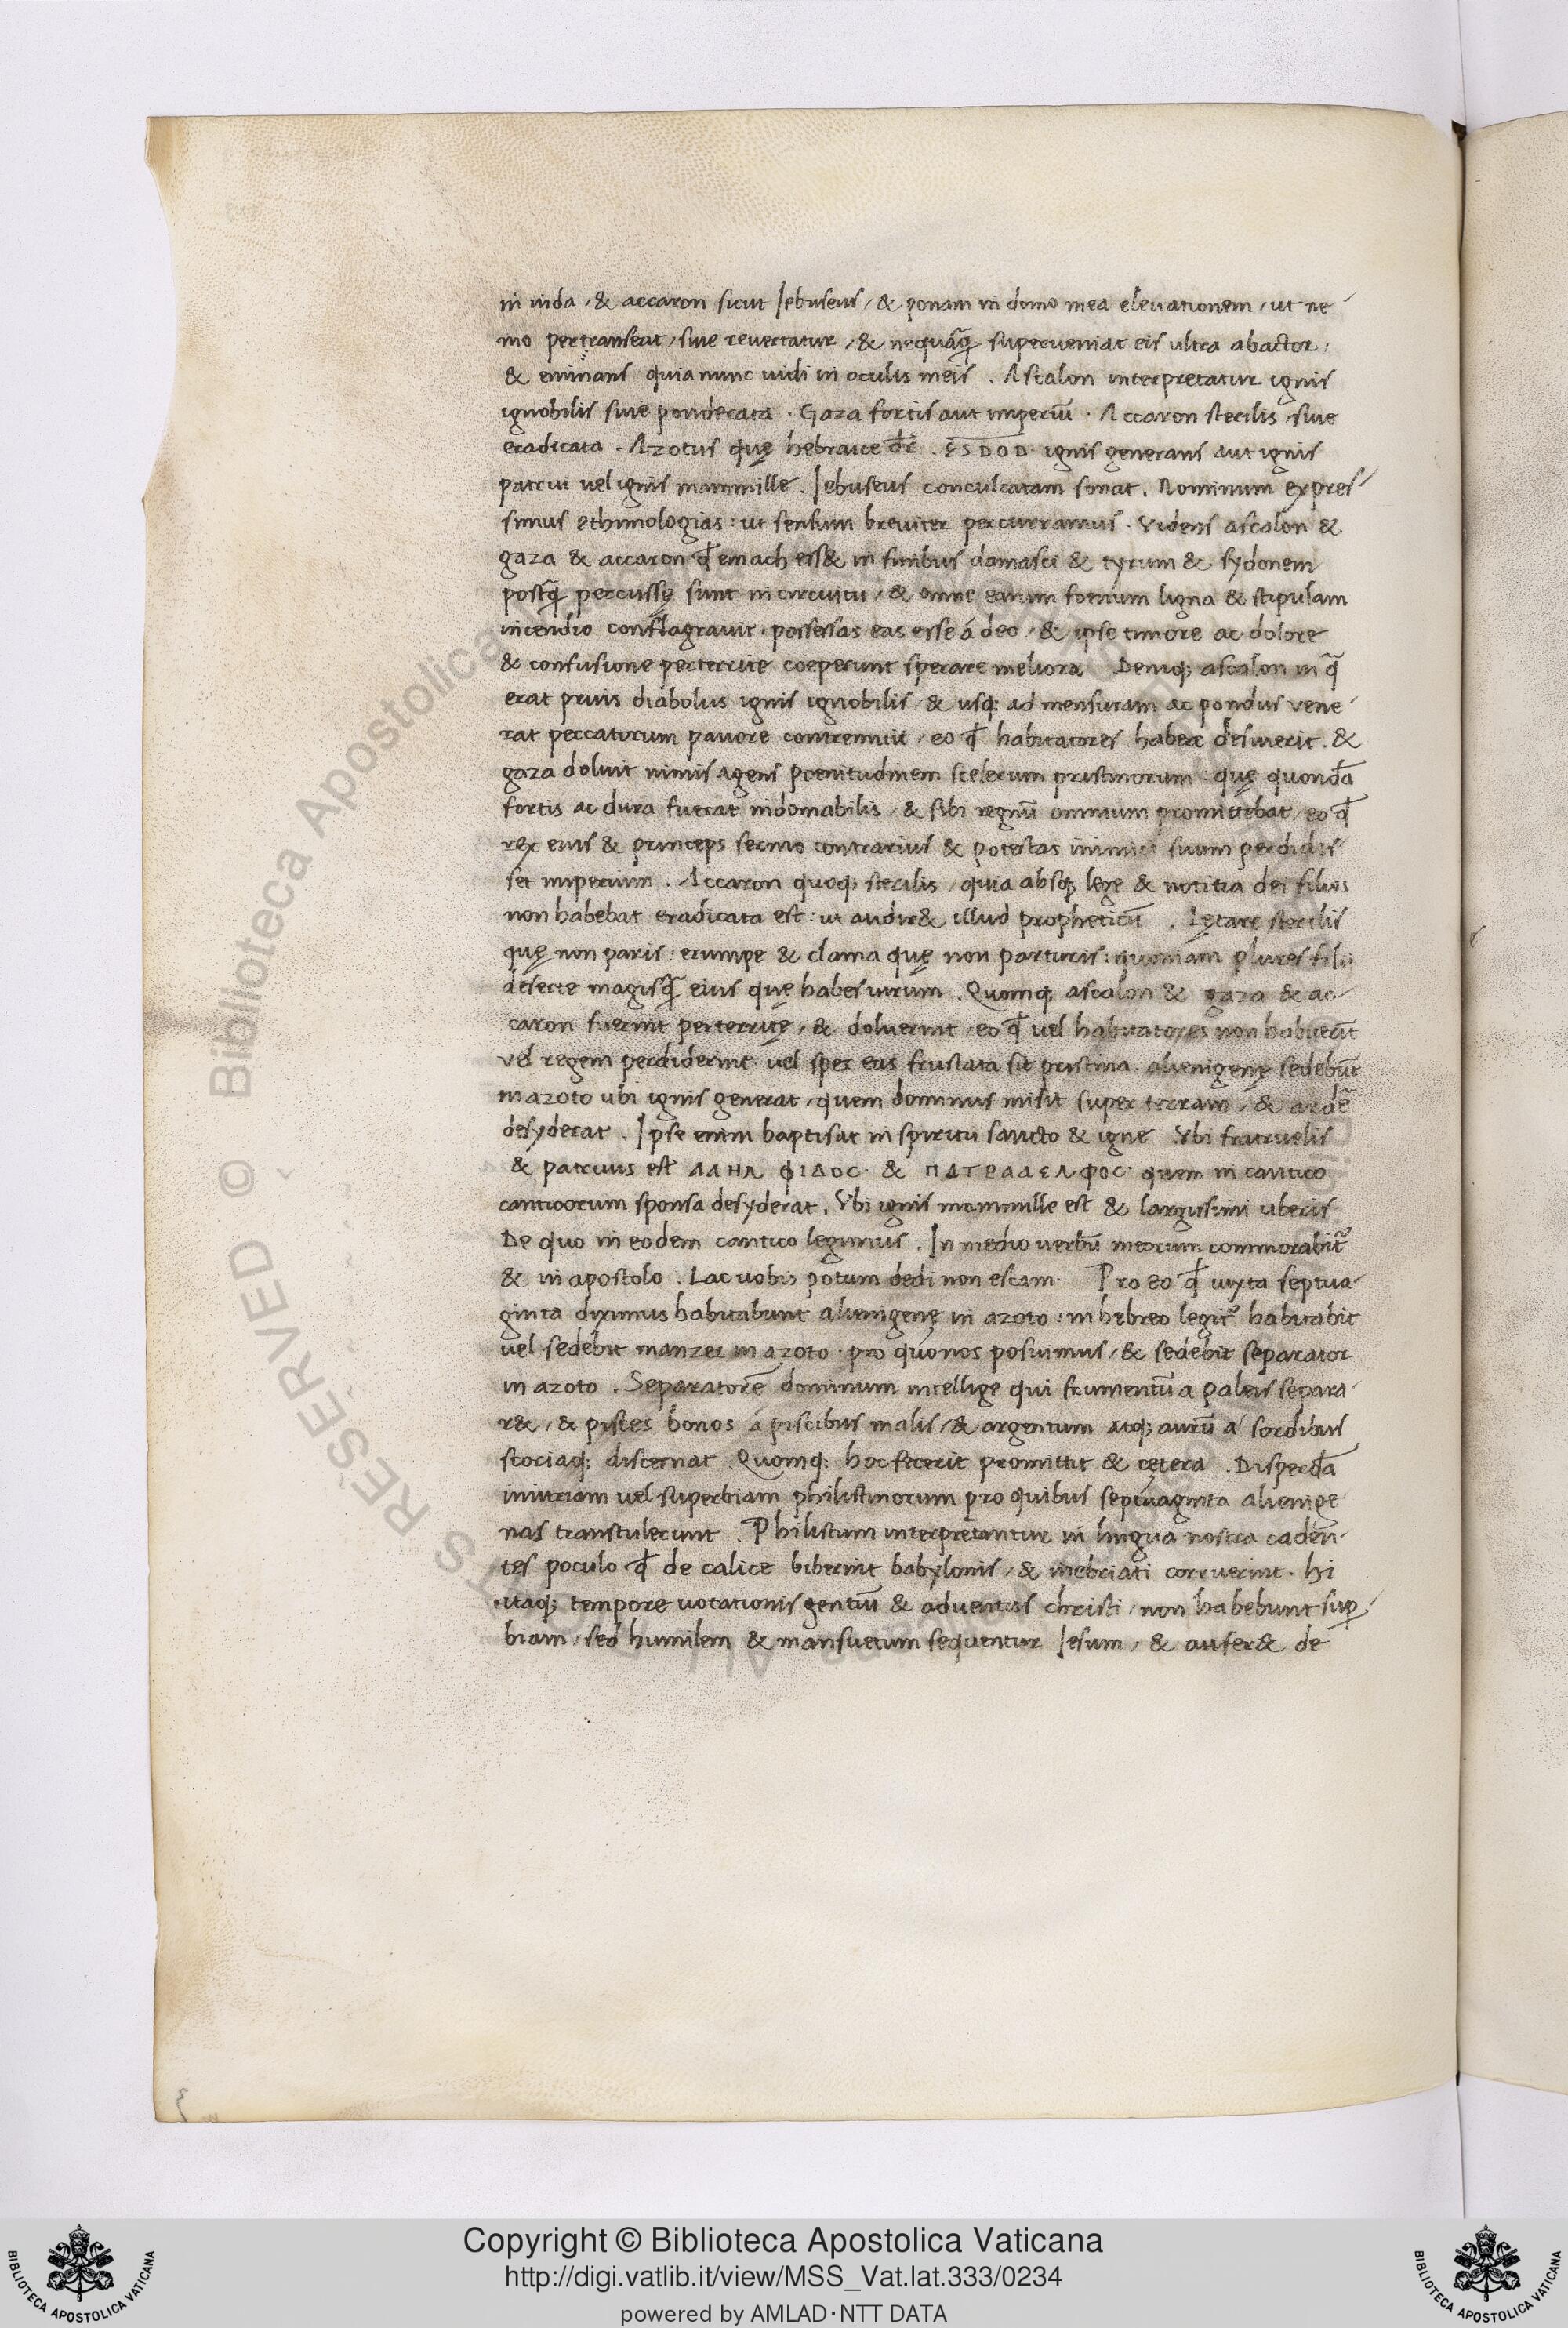 in iuda, & accaron sicut Iebuseus, & ponam in domo mea eleuationem, ut ne-
mo pertranseat, siue reuertatur, & nequaq̃ superueniat eis ultra abactor,
& eminans quia nunc uidi in oculis meis. Ascalon interpretatur ignis
ignobilis siue ponderata. Gaza fortis aut imperiũ. Accaron sterilis, siue
eradicata. Azotus quę hebraice dr̃. ESDOD ignis generans aut ignis
patrui uel ignis mammille. Iebuseus conculcatam sonat. Nominum expres-
simus ethimologias: ut sensum breuiter percurramus. Videns ascalon &
gaza & accaron qđ emach ess& in finibus damasci & tyrum & sydonem
postq̃ percussę sunt in circuitu, & omne earum foenum ligna & stipulam
incendio conflagrauit, possessas eas esse á deo, & ipse timore ac dolore
& confusione perterrite coeperunt sperare meliora Deniq; ascalon in q̃
erat prius diabolus ignis ignobilis, & usq; ad mensuram ac pondus vene-
rat peccatorum pauore contremuit, eo qđ habitatores habere desiuerit. &
gaza doluit nimis agens poenitudinem scelerum pristinorum: quę quondã
fortis ac dura fuerat indomabilis, & sibi regnũ omnium promittebat, eo qđ
rex eius & princeps sermo contrarius & potestas inimici suum perdidis
set imperium. Accaron quoq; sterilis, quia absq; lege & notitia dei filios
non habebat eradicata est: ut audir& illud propheticũ. Lętare sterilis
quę non paris: erumpe & clama quę non parturis: quoniam plures filii
desertę magisq̃ eius quę habes uirum. Quomq; ascalon & gaza & ac-
caron fuerint perterritę, & doluerint, eo qđ uel habitatores non habuerĩt
vel regem perdiderint uel spes eas frustata sit pristina. alienigenę sedebũt
in azoto ubi ignis generat, quem dominus misit super terram, & ardẽ
desyderat. Ipse enim baptisat in spiritu sancto & igne Vbi fratruelis
& patruus est ΛΔΗΛ ΦΙΔΟC. & ΠΑΤΡΑΔΕΛΦΟC. quem in cantico
canticorum sponsa desyderat. Vbi ignis mammille est & largissimi uberis
De quo in eodem cantico legimus. In medio uerbũ meorum commorabit᷑
& in apostolo. Lac uobis potum dedi non escam. Pro eo qđ iuxta septua-
ginta diximus habitabunt alienigenę in azoto: in hebreo legit᷑ habitabit
uel sedebit manzer in azoto. pro quo nos posuimus, & sedebit separator
in azoto. Separatorẽ dominum intellige qui frumentũ a paleis separa-
r&, & pisces bonos á piscibus malis, & argentum atq; aurũ a sordibus
scoriaq; discernat. Quomq; hoc fecerit promittit & cętera. Disperdã
iniuriam uel superbiam philistinorum pro quibus septuaginta alienige
nas transtulerunt. Philistium interpretantur in lingua nostra caden-
tes poculo qđ de calice biberint babylonis, & inebriati corruerint. hi
itaq; tempore uocationis gentiũ & aduentus christi, non habebunt sup̱-
biam, sed humilem & mansuetum sequentur Iesum, & aufer& de
Copyright © Biblioteca Apostolica Vaticana
http://digi.vatlib.it/view/MSS_Vat.lat.333/0234
powered by AMLAD·NTT DATA